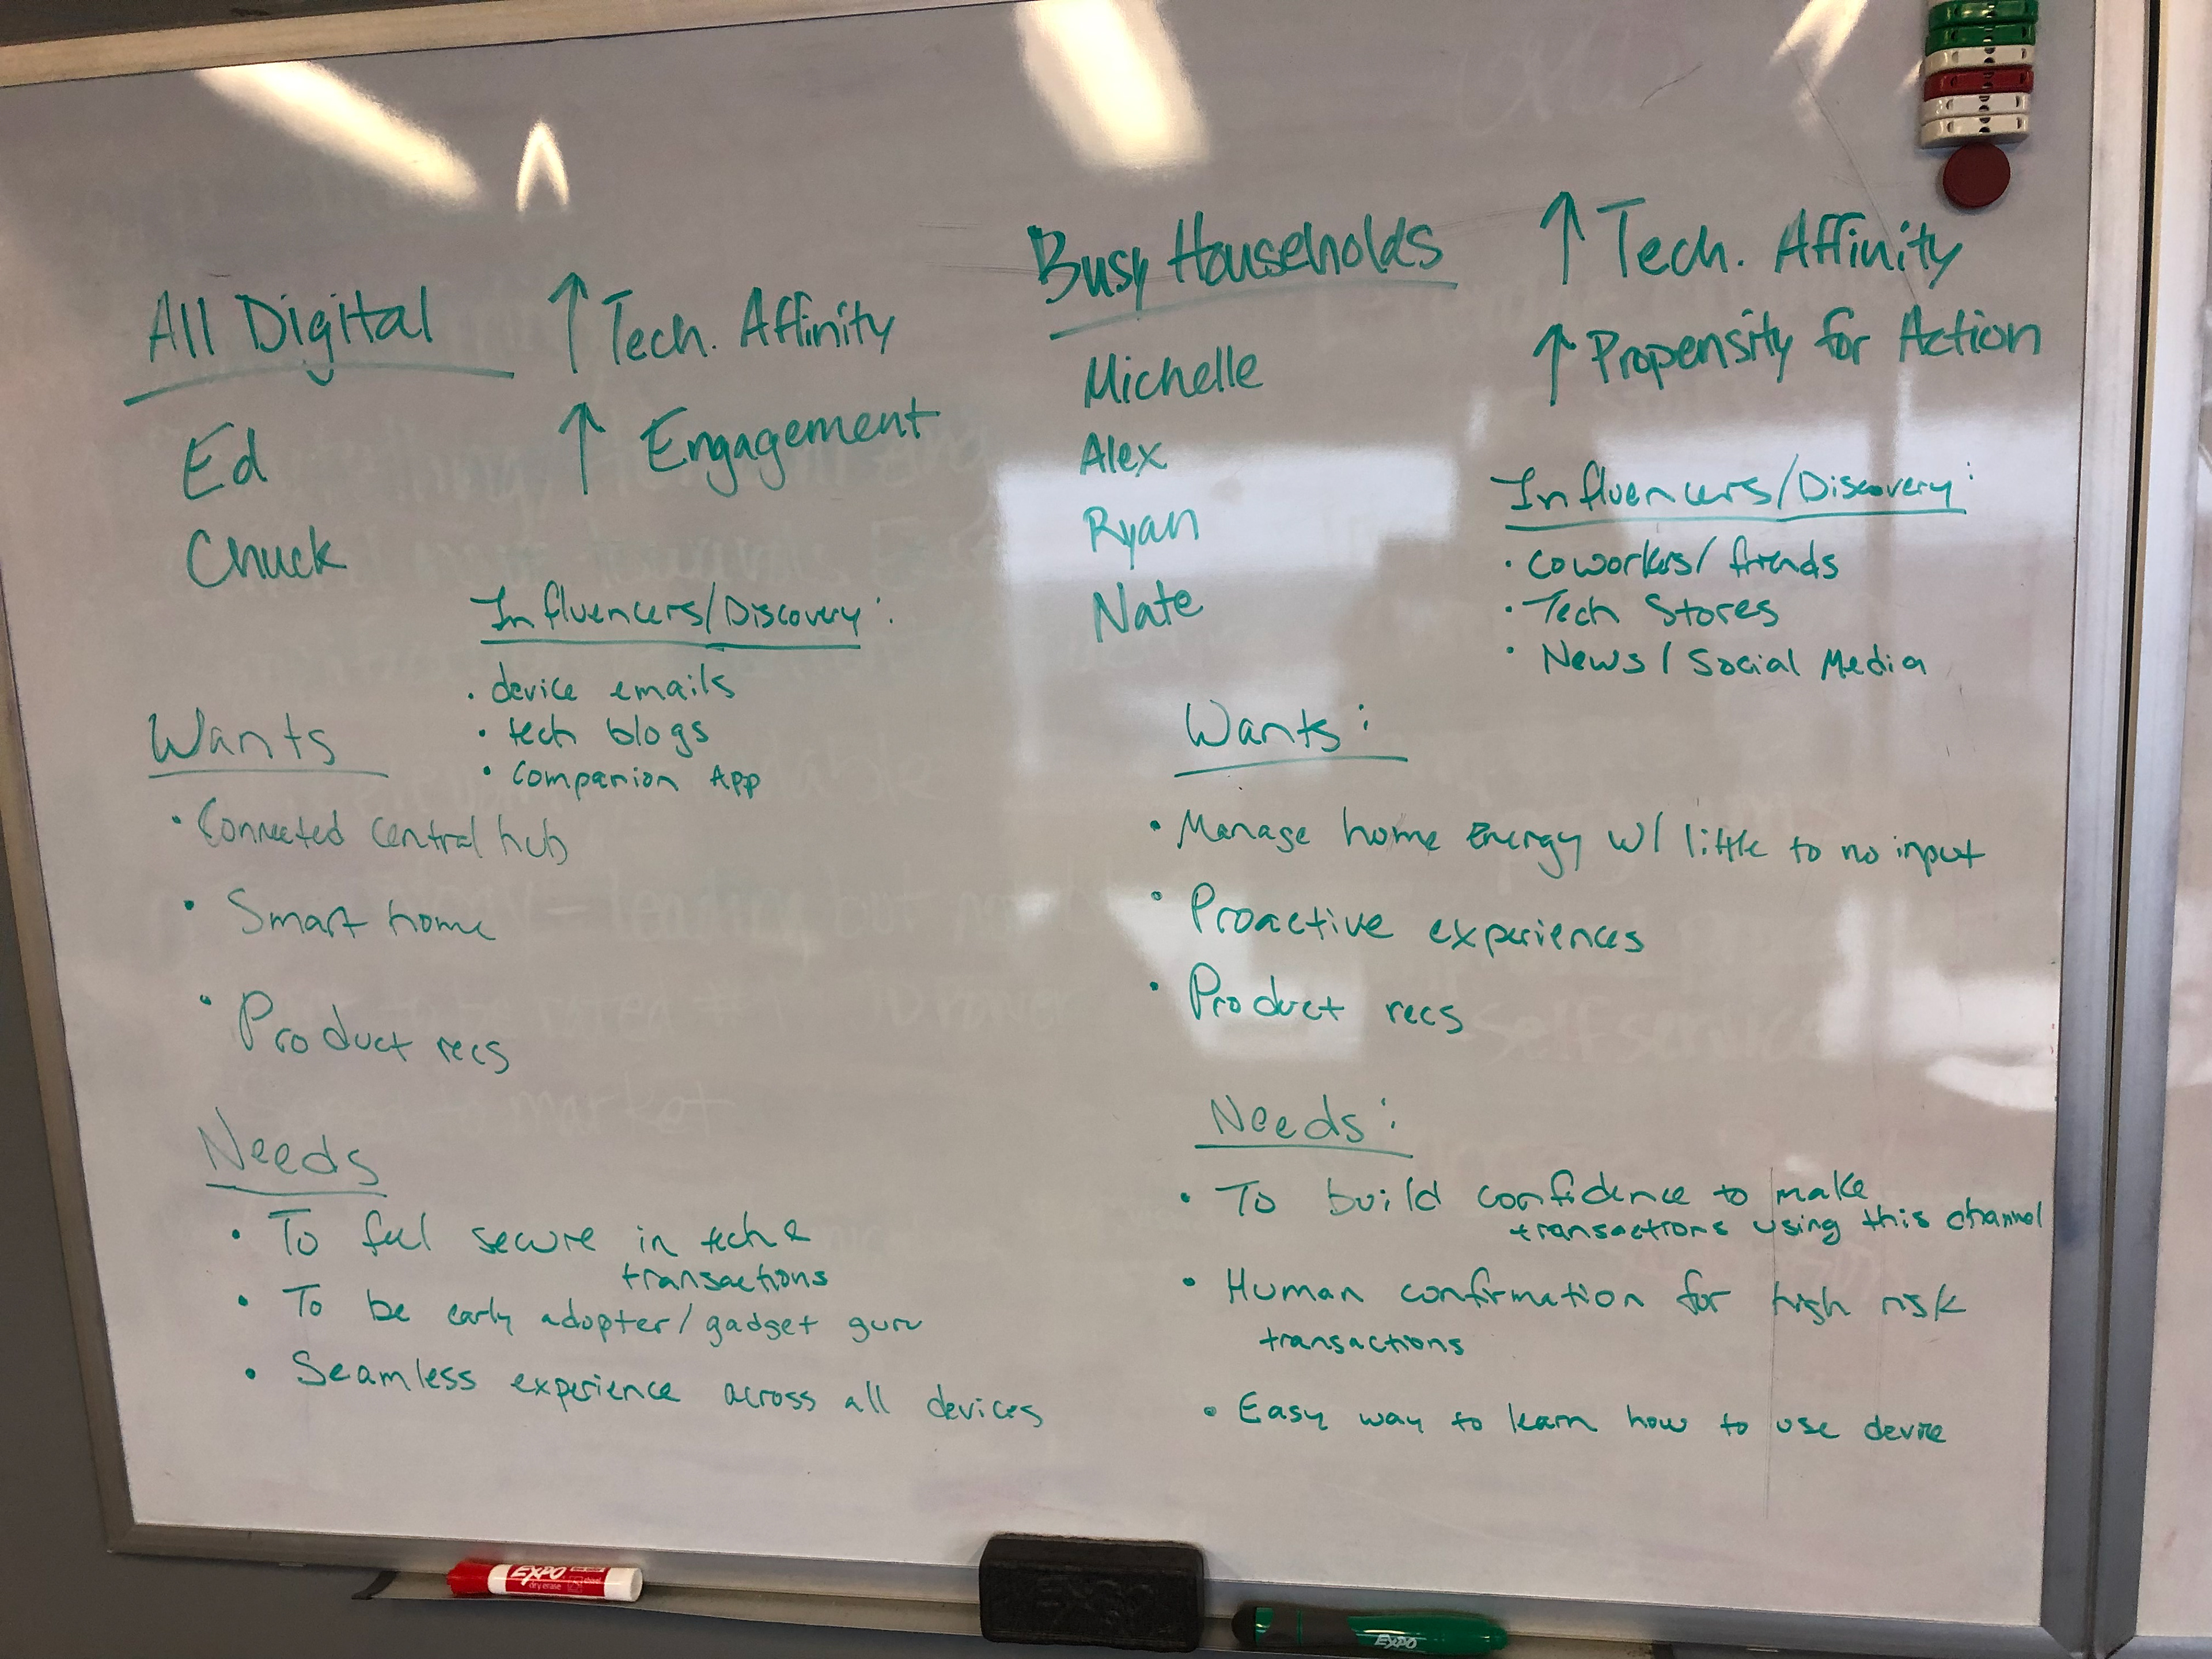 All Digital
↑ Tech. Affinity
↑ Engagement
Ed
Chuck
Influencers/Discovery:
· device emails
· tech blogs
· Companion App
Wants
· Connected central hub
· Smart home
· Product recs
Needs
· To feel secure in tech &
transactions
· To be early adopter/gadget guru
· Seamless experience across all devices
Busy Households
↑ Tech. Affinity
↑ Propensity for Action
Michelle
Alex
Ryan
Nate
Influencers/Discovery:
· coworkers/friends
· Tech Stores
· News/Social Media
Wants:
· Manage home Energy w/ little to no input
· Proactive experiences
· Product recs
Needs:
· To build confidence to make
transactions using this channel
· Human confirmation for high risk
transactions
· Easy way to learn how to use device
self service
Speed to market
EXPO
dry erase
EXPO